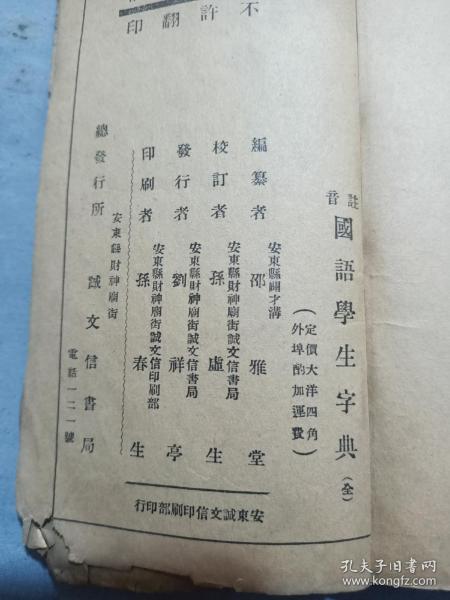 不許翻印
註音 國語學生字典（全）
（定價大洋四角
外埠酌加運費）
編纂者 安東縣財才溝 邵雅堂
校訂者 安東縣財神廟街誠文信書局 孫虛生
發行者 安東縣財神廟街誠文信書局 劉祥亭
印刷者 安東縣財神廟街誠文信印刷部 孫春生
總發行所 安東縣財神廟街 誠文信書局 電話一二一號
安東誠文信印刷部印行
孔夫子旧书网
www.kongfz.com